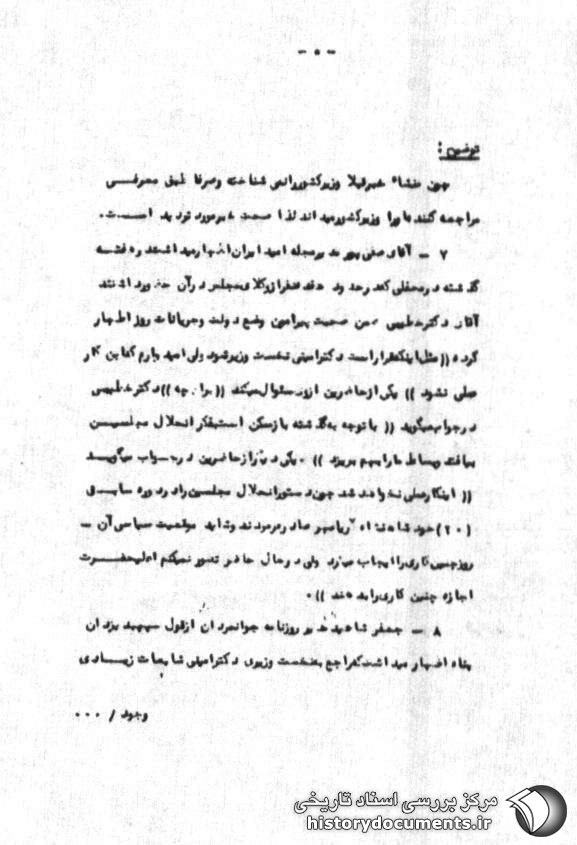 - ۵ -
توضیح :
چون منشاء خبر قبلا وزیر کشور را نمی شناخته و صرفا طبق معرفی
مراجعه کننده او را وزیر کشور میداند لذا صحت خبر مورد تردید است .
۷ - آقای صفی پور مدیر مجله امید ایران اظهار میداشت در هفته
گذشته در محفلی که در حدود هفده نفر از وکلای مجلس در آن حضور داشتند
آقای دکتر خطیبی ضمن صحبت پیرامون وضع دولت و جریانات روز اظهار
کرده (( مثل اینکه قرار است دکتر امینی نخست وزیر شود ولی امیدوارم که این کار
عملی نشود )) یکی از حاضرین از وی سئوال میکند (( چرا چه )) دکتر خطیبی
در جواب میگوید (( با توجه به گذشته باز ممکن است بفکر انحلال مجلسین
بیافتد و بساط ما را بهم بریزد )) . یکی دیگر از حاضرین در جواب میگوید
(( اینکار عملی نخواهد شد چون دستور انحلال مجلسین را در دوره سابق
(۲۰) خود شاهنشاه آریامهر صادر فرمودند و شاید موقعیت سیاسی آن -
روز چنین کاری را ایجاب میکرد ولی در حال حاضر تصور نمیکنم اعلیحضرت
اجازه چنین کاری را بدهند )) .
۸ - جعفر شاهید مدیر روزنامه جوانمردان از قول سپهبد یزدان
پناه اظهار میداشت که راجع به نخست وزیری دکتر امینی شایعات زیادی
وجود / ...
مرکز بررسی اسناد تاریخی
historydocuments.ir